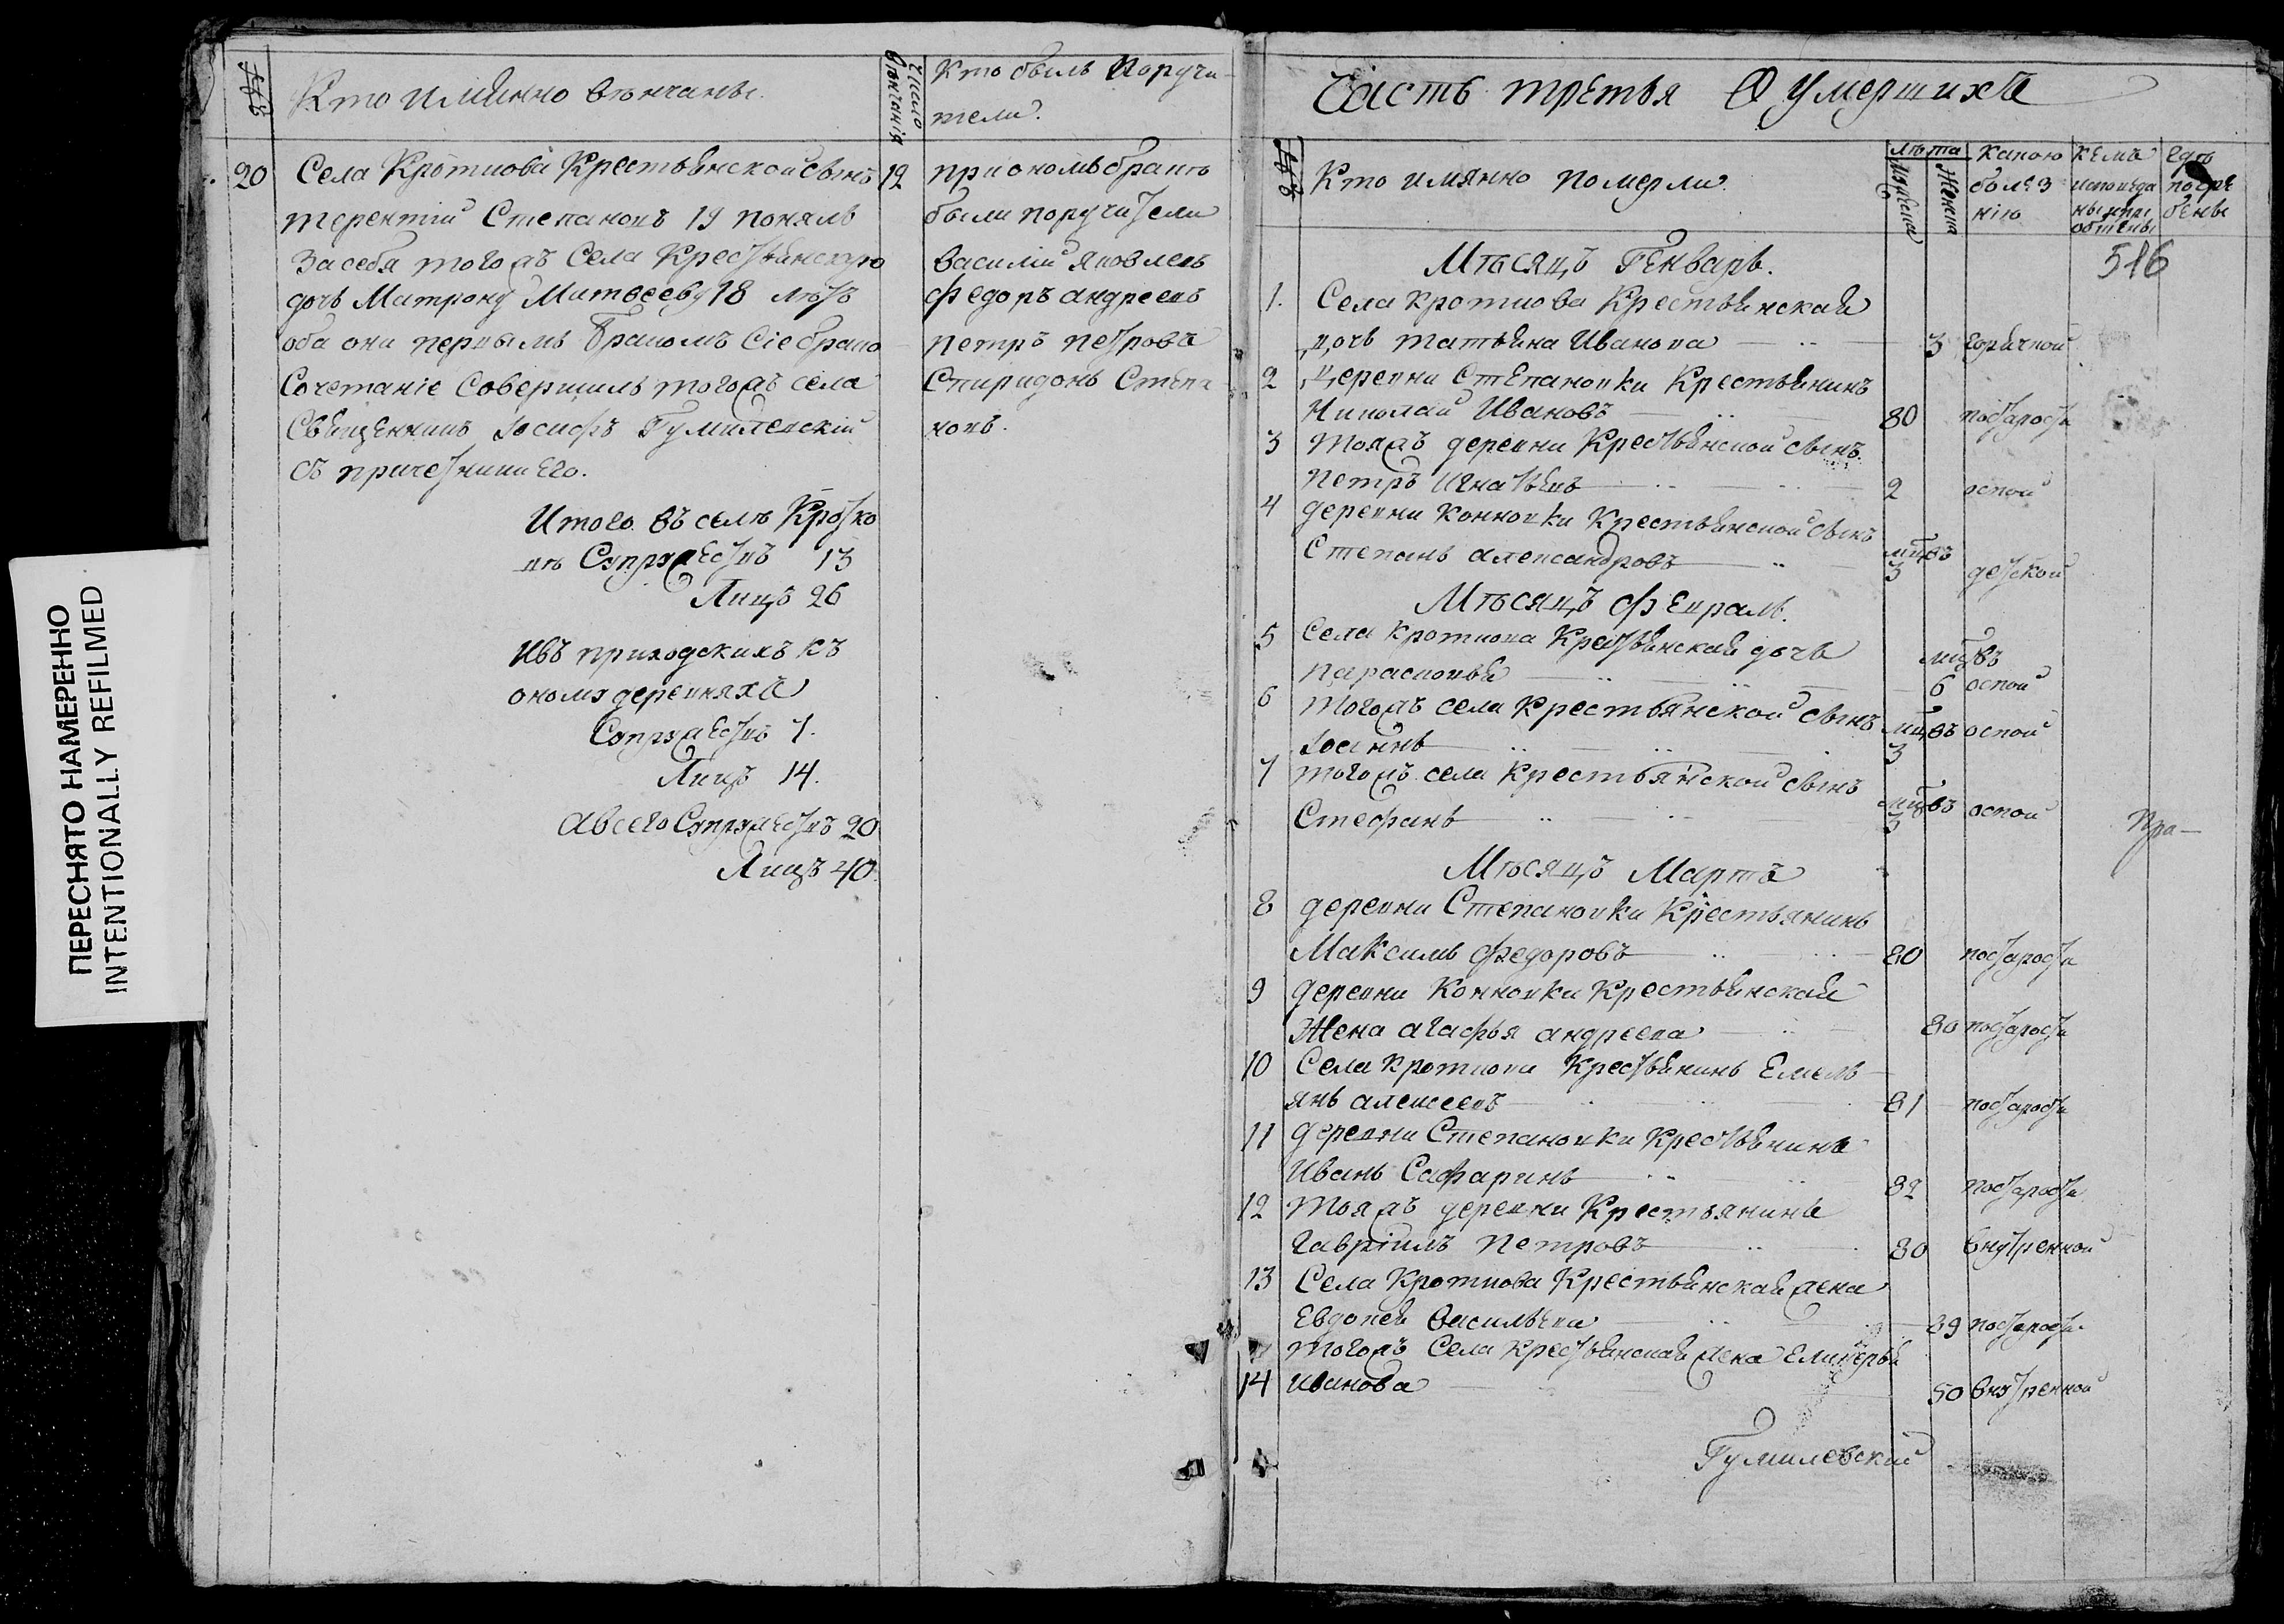 ПЕРЕСНЯТО НАМЕРЕННО
INTENTIONALLY REFILMED
№
Кто имянно венчаны.
Число венчанія
Кто былъ Поручи
тели.
20 Села Кроткова Крестьянской сынъ 12
терентій Степановъ 19 понялъ
за себя тогожъ Села Крестьянскую
дочь Матрону Матвееву 18 летъ
оба они первымъ бракомъ Сіе брако
Сочетаніе Совершилъ тогожъ села
Священникъ Іосифъ Гумилевскій
съ причетники Его.
при ономъ браке
были поручители
василій яковлевъ
федоръ андреевъ
петръ петровъ
Спиридонъ Степа
новъ.
Итого въ селе Кротко
ве Супружествъ 13
Лицъ 26
Ивъ приходскихъ къ
ономя деревняхъ
Супружествъ 7.
Лицъ 14.
а всего Супружествъ 20
Лицъ 40.
Часть третья О умершихъ
№
Кто имянно померли.
лѣта
мужеска
Женска
Какою
болѣз
нію
кемъ
исповеда
ны и прі
общены
где
погре
бены
586
Мѣсяцъ Генварь.
1. Села кроткова Крестьянская
дочь татьяна Иванова 3 горячкой
2 Деревни Степановки Крестьянинъ
Николай Ивановъ 80 постарости
3 тояжъ деревни Крестьянской сынъ
петръ игнатьевъ 2 оспой
4 деревни конновки Крестьянской сынъ
Степанъ александровъ мцовъ 3 детской
Мѣсяцъ февраль.
5 Села кроткова Крестьянская дочь
парасковья мцовъ 6 оспой
6 тогожъ села Крестьянской сынъ мцовъ оспой
Іоаннъ 3
7 тогожъ села Крестьянской сынъ
Стефанъ мцовъ 3 оспой
Пра-
Мѣсяцъ Мартъ
8 деревни Степановки Крестьянинъ
Максимъ федоровъ 80 постарости
9 деревни Конновки Крестьянская
Жена агафья андреева 80 постарости
10 Села кроткова Крестьянинъ Емель
янъ алексеевъ 81 постарости
11 деревни Степановки Крестьянинъ
Иванъ Сафаринъ 82 постарости
12 тояжъ деревни Крестьянинъ
гавріилъ петровъ 80 внутренной
13 Села Кроткова Крестьянская жена
Евдокея васильева 89 постарости
тогожъ Села крестьянская жена
14 иванова 50 внутренной
Гумилевскій